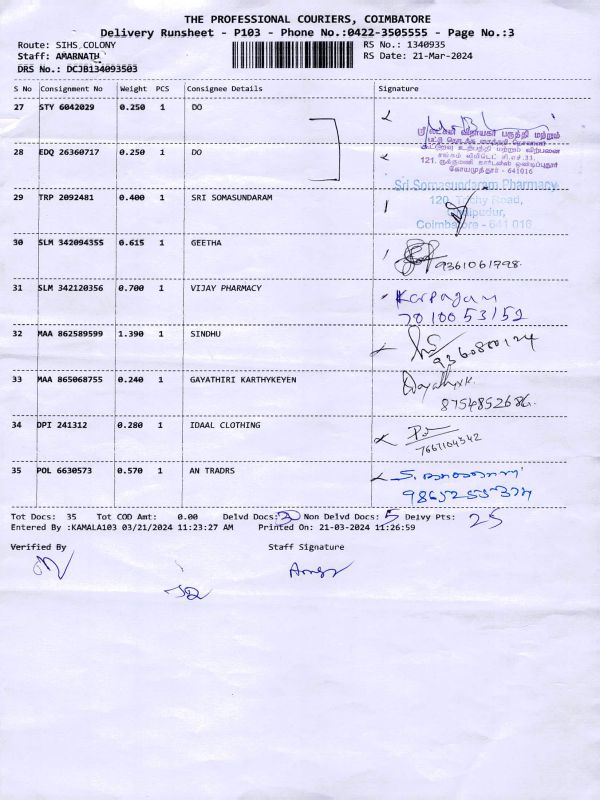 THE PROFESSIONAL COURIERS, COIMBATORE
Delivery Runsheet - P103 - Phone No.:0422-3505555 - Page No.:3
Route: SIHS COLONY
RS No.: 1340935
Staff: AMARNATH
RS Date: 21-Mar-2024
DRS No.: DCJB134093503
S No Consignment No Weight PCS Consignee Details Signature
27 STY 6042029 0.250 1 DO
28 EDQ 26360717 0.250 1 DO
121,
- 641016
29 TRP 2092481 0.400 1 SRI SOMASUNDARAM
Sri Somasundaram Pharmacy
120, Trichy Road,
Coimbatore - 641 016
30 SLM 342094355 0.615 1 GEETHA
9361061998.
31 SLM 342120356 0.700 1 VIJAY PHARMACY
Karpagam
7010053152
32 MAA 862589599 1.390 1 SINDHU
9360800124
33 MAA 865068755 0.240 1 GAYATHIRI KARTHYKEYEN
8754852686.
34 DPI 241312 0.280 1 IDAAL CLOTHING
7667104342
35 POL 6630573 0.570 1 AN TRADRS
Tot Docs: 35 Tot COD Amt: 0.00 Delvd Docs: Non Delvd Docs: 5 Delvy Pts: 25
Entered By :KAMALA103 03/21/2024 11:23:27 AM Printed On: 21-03-2024 11:26:59
Verified By Staff Signature